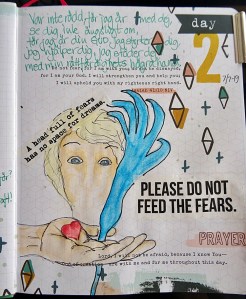 Var inte rädd, för jag är med dig,
se dig inte ängsligt om,
för jag är din Gud. Jag styrker dig,
jag hjälper dig, jag stöder dig
med min rättfärdighets högra hand
for I am your God. I will strengthen you and help you;
I will uphold you with my righteous right hand.
Isaiah 41:10
day
2
7/1-19
A head full of fears
has no space for dreams.
PLEASE DO NOT
FEED THE FEARS.
PRAYER
Lord, I will not be afraid, because I know You—
are with me and for me throughout this day.